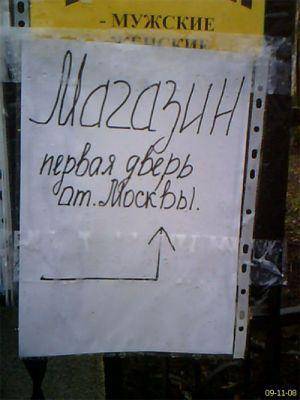 - МУЖСКИЕ
ЖЕНСКИЕ
Магазин
первая дверь
от. Москвы.
09-11-08